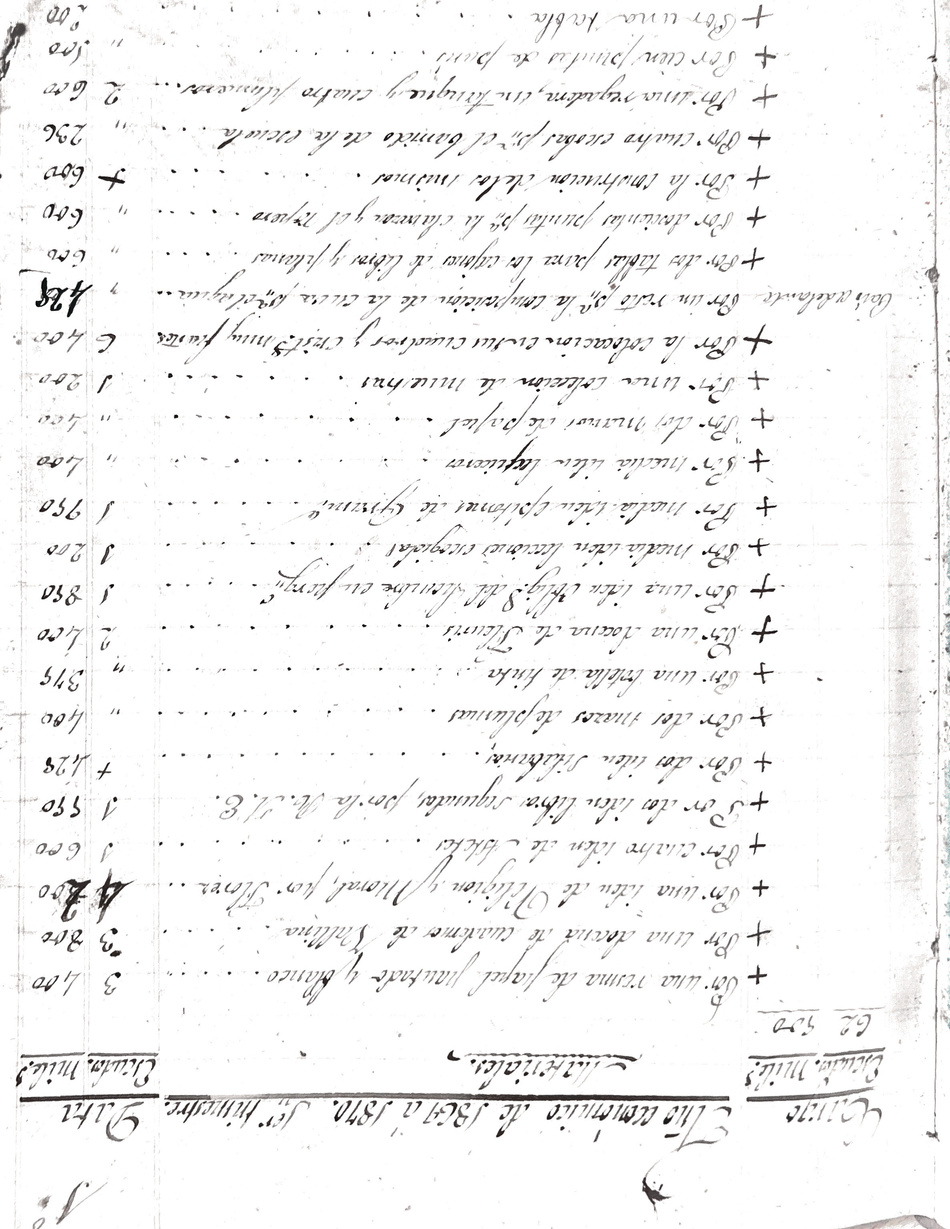 1º
Cargo Año económico de 1869 á 1870. 1er trimestre. Data
Escudos. Mils. Materiales. Escudos. Mils.
62 500
+ Por una resma de papel pautado y blanco . . . . 3 400
+ Por una docena de cuadernos de Vallina . . . . 3 800
+ Por una iden de Religion y Moral, por Florez ... 4 200
+ Por cuatro iden de Astetes . . . . 1 600
+ Por dos iden libros segundos, por la R. A. E. 1 550
+ Por dos iden Silabarios, . . . . + 428
+ Por dos mazos de plumas . . . . " 400
+ Por una botella de tinta . . . . " 375
+ Por una docena de Fleuris . . . . 2 400
+ Por una iden Oblig.s del hombre en . . . . 1 850
+ Por media iden lecciones escogidas . . . . 1 200
+ Por media iden Epitomes de Gram.ca . . . . 1 750
+ Por media iden . . . . " 400
+ Por dos manos de papel . . . . " 400
+ Por una coleccion de muestras . . . . 1 200
+ Por la colocacion en sus cuadros y crist.s muy fuertes 6 400
adelante Por un resto p.a la composicion de la . . . " 428
+ Por dos tablas para los cajones de libros y planas " 600
+ Por doscientas puntas p.a la y el . . . . " 600
+ Por la construcion de los mismos . . . . + 600
+ Por cuatro escobas p.a el barrido de la escuela . . . " 236
+ Por una regadera, un tanque y cuatro plumeros ... 2 600
+ Por cien puntas de . . . . " 500
+ Por una tabla . . . . 200